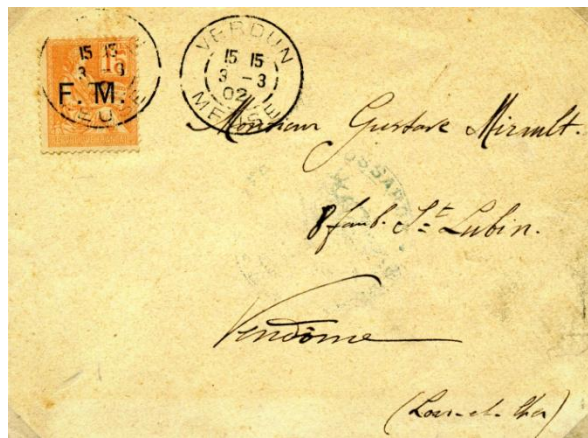 15
F. M.
MEUSE
VERDUN
15 15
3 - 3
02
MEUSE
Monsieur Gustave Mirault.
8 faub. St Lubin.
Vendôme
(Loir-et-Cher)